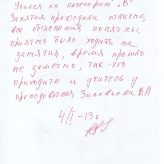 Учился на категорию „В"
Занятия проходили отлично,
все объяснения понятны,
приятно было ходить на
занятия, время прошло
не заметно, так что
приходите и учитесь у
преподователя Зиновьева В.А
4/II-13г.